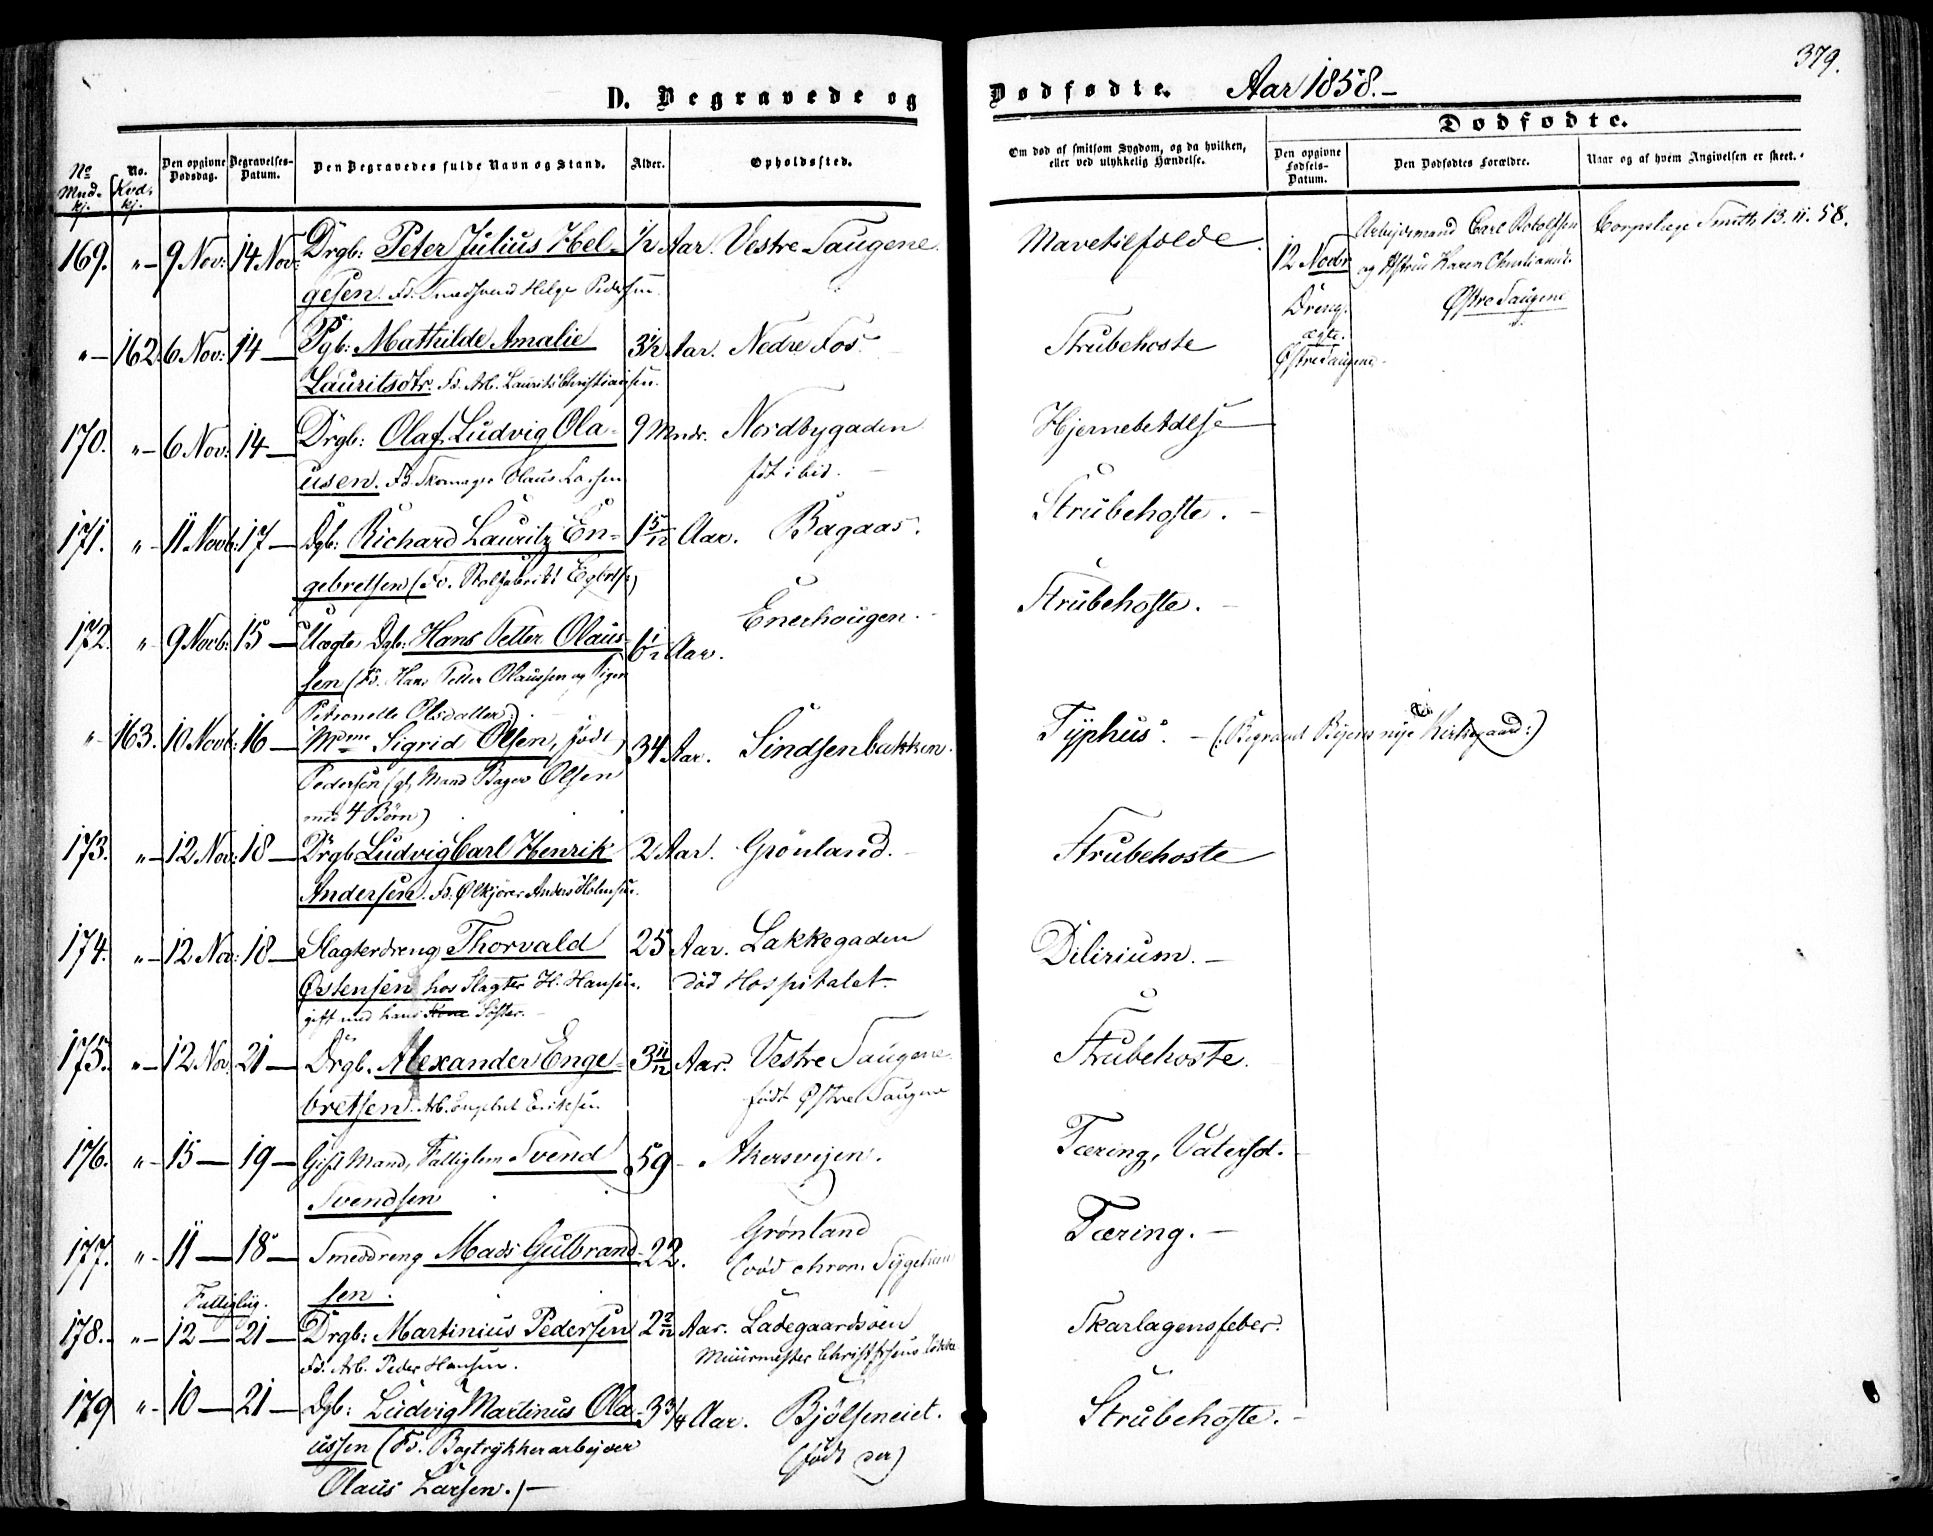 379.
D. Begravede og Dødfødte. Aar 1858.-
Dødfødte.
No Mnd. kj.
No. Kvd. kj.
Den opgivne Dødsdag.
Begravelses-Datum.
Den Begravedes fulde Navn og Stand.
Alder.
Opholdssted.
Om død af smitsom Sygdom, og da hvilken, eller ved ulykkelig Hændelse.
Den opgivne Fødsels-Datum.
Den Dødfødtes Forældre.
Naar og af hvem Angivelsen er skeet.
169. „ – 9 Nov: 14 Nov: Drgb: Peter Julius Hel- ½ Aar. Vestre Saugene. Mavetilfælde.
gesen. Fd. Smedsvend Helge Pedersen.
12 Novbr Dreng. ægte. Østre Saugene
Arbeidsmand Carl
og Karen
Østre Saugene
Corpslæge Smith 13.11.58.
„ – 162. 6 Nov: 14 – Pgb: Mathilde Amalie 3½ Aar. Nedre Fos. Strubehoste
Lauritsdtr. Fd. Arb. Laurits Christiansen.
170. „ – 6 Nov: 14 – Drgb: Olaf Ludvig Ola- 9 Mndr. Nordbygaden Hjernebetdlse
usen. Fd. Skomager Olaus Larsen født ibid.
171. „ – 11 Novb: 17 – Dgb: Richard Lauritz En- 1 5/12 Aar. Bagaas. Strubehoste. –
gebretsen (Fd. Stolfabrikt Egbrtsn)
172. „ 9 Novb: 15 – Uægte Dgb: Hans Petter Olaus- 6½ Aar. Enerhougen. Strubehoste. –
sen (Fd. Hans Petter Olaussen og Pigen
Petronelle Olsdatter.)
„ 163. 10 Novb: 16 – Mdme Sigrid Olsen, født 34 Aar. Sindsenbakken. Typhus. – (: Begravet Byens nye Kirkegaard:)
Pedersen (gl. Mand Bager Olsen
med 4 Børn)
173. „ – 12 Nov: 18 – Drgb. Ludvig Carl Henrik 2 Aar. Grønland. – Strubehoste
Andersen. Fd: Ølkjører Anders
174. „ – 12 Nov: 18 – Slagterdreng Thorvald 25 Aar. Lakkegaden Delirium. –
Østensen hos Slagter H. Hansen. død Hospitalet.
gift med hans Søster.
175. „ – 12 Nov. 21 – Drgb. Alexander Enge- 3 11/12 Aar. Vestre Saugene Strubehoste.
bretsen. Arb. Engebret Eriksen. født Østre Saugene
176. „ – 15 – 19 – Gift Mand, Fattiglem Svend 59 – Akersvejen. Tæring, Vatersot. –
Svendsen
177. „ – 11 – 18 – Smeddreng Mads Gulbrand- 22. Grønland Tæring. –
sen. (død chron. Sygehuus
Fattiglig.
178. „ – 12 – 21 – Drgb: Martinius Pedersen 2 2/12 Aar. Ladegaardsøen Skarlagensfeber.
Fd. Arb. Peder Hansen. Muurmester Løkke
179 „ – 10 – 21 – Dgb: Ludvig Martinus Ola- 3 3/4 Aar. Bjølseneiet. Strubehoste. –
ussen (Fd. Bogtrykkerarbejder (født der)
Olaus Larsen.) –